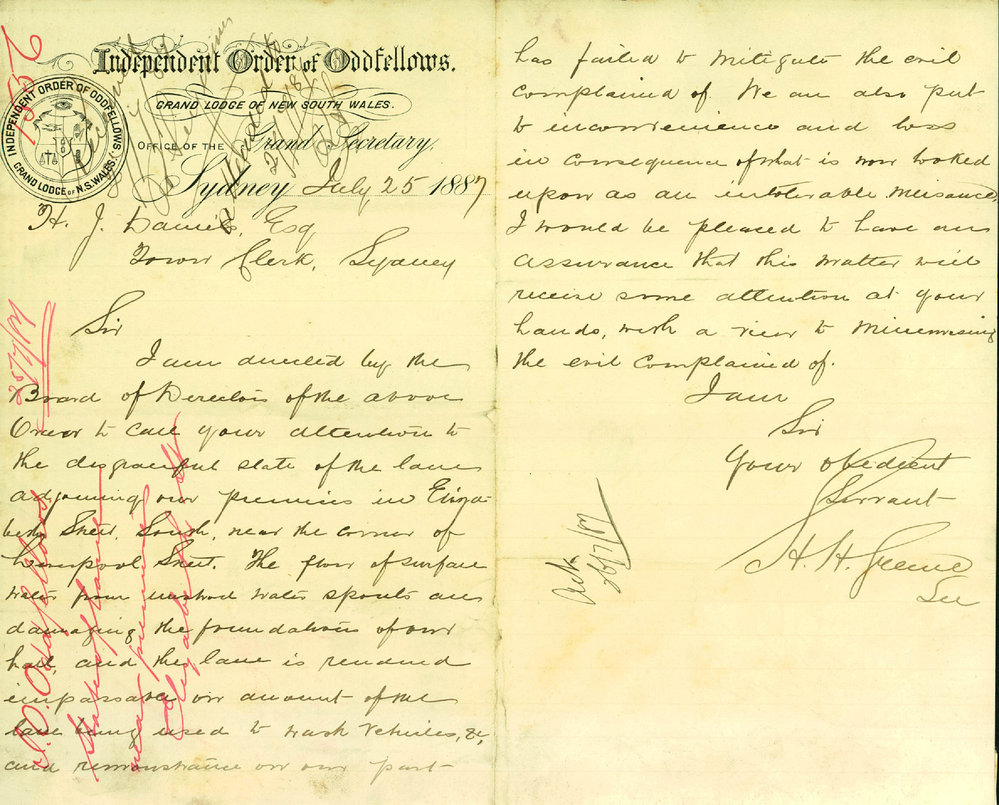 2951
Independent Order of Oddfellows.
GRAND LODGE OF NEW SOUTH WALES.
INDEPENDENT ORDER OF ODDFELLOWS.
GRAND LODGE OF N.S. WALES.
OFFICE OF THE Grand Secretary,
Sydney July 25 1887
H. J. Daniels, Esq
Town Clerk, Sydney
Sir
I am directed by the
Board of Directors of the above
Order to call your attention to
the disgraceful state of the lane
adjoining our premises in Eliza-
beth Street, South, near the corner of
Liverpool Street. The flow of surface
water from water spouts are
damaging the foundations of our
hall, and the lane is rendered
impassable on amount of the
lane being used to wash vehicles, &c,
and remonstrance on our part
has failed to mitigate the evil
complained of. We are also put
to inconvenience and loss
in consequence of what is now looked
upon as an intolerable nuisance,
I would be pleased to have an
assurance that this matter will
receive some attention at your
hands, with a view to minimising
the evil complained of.
I am
Sir
Your obedient
Servant
H. H. Greene
Sec
Ack
26/7/87
25/7/87
I. O. Oddfellows
State of lane
near premises
Elizabeth St